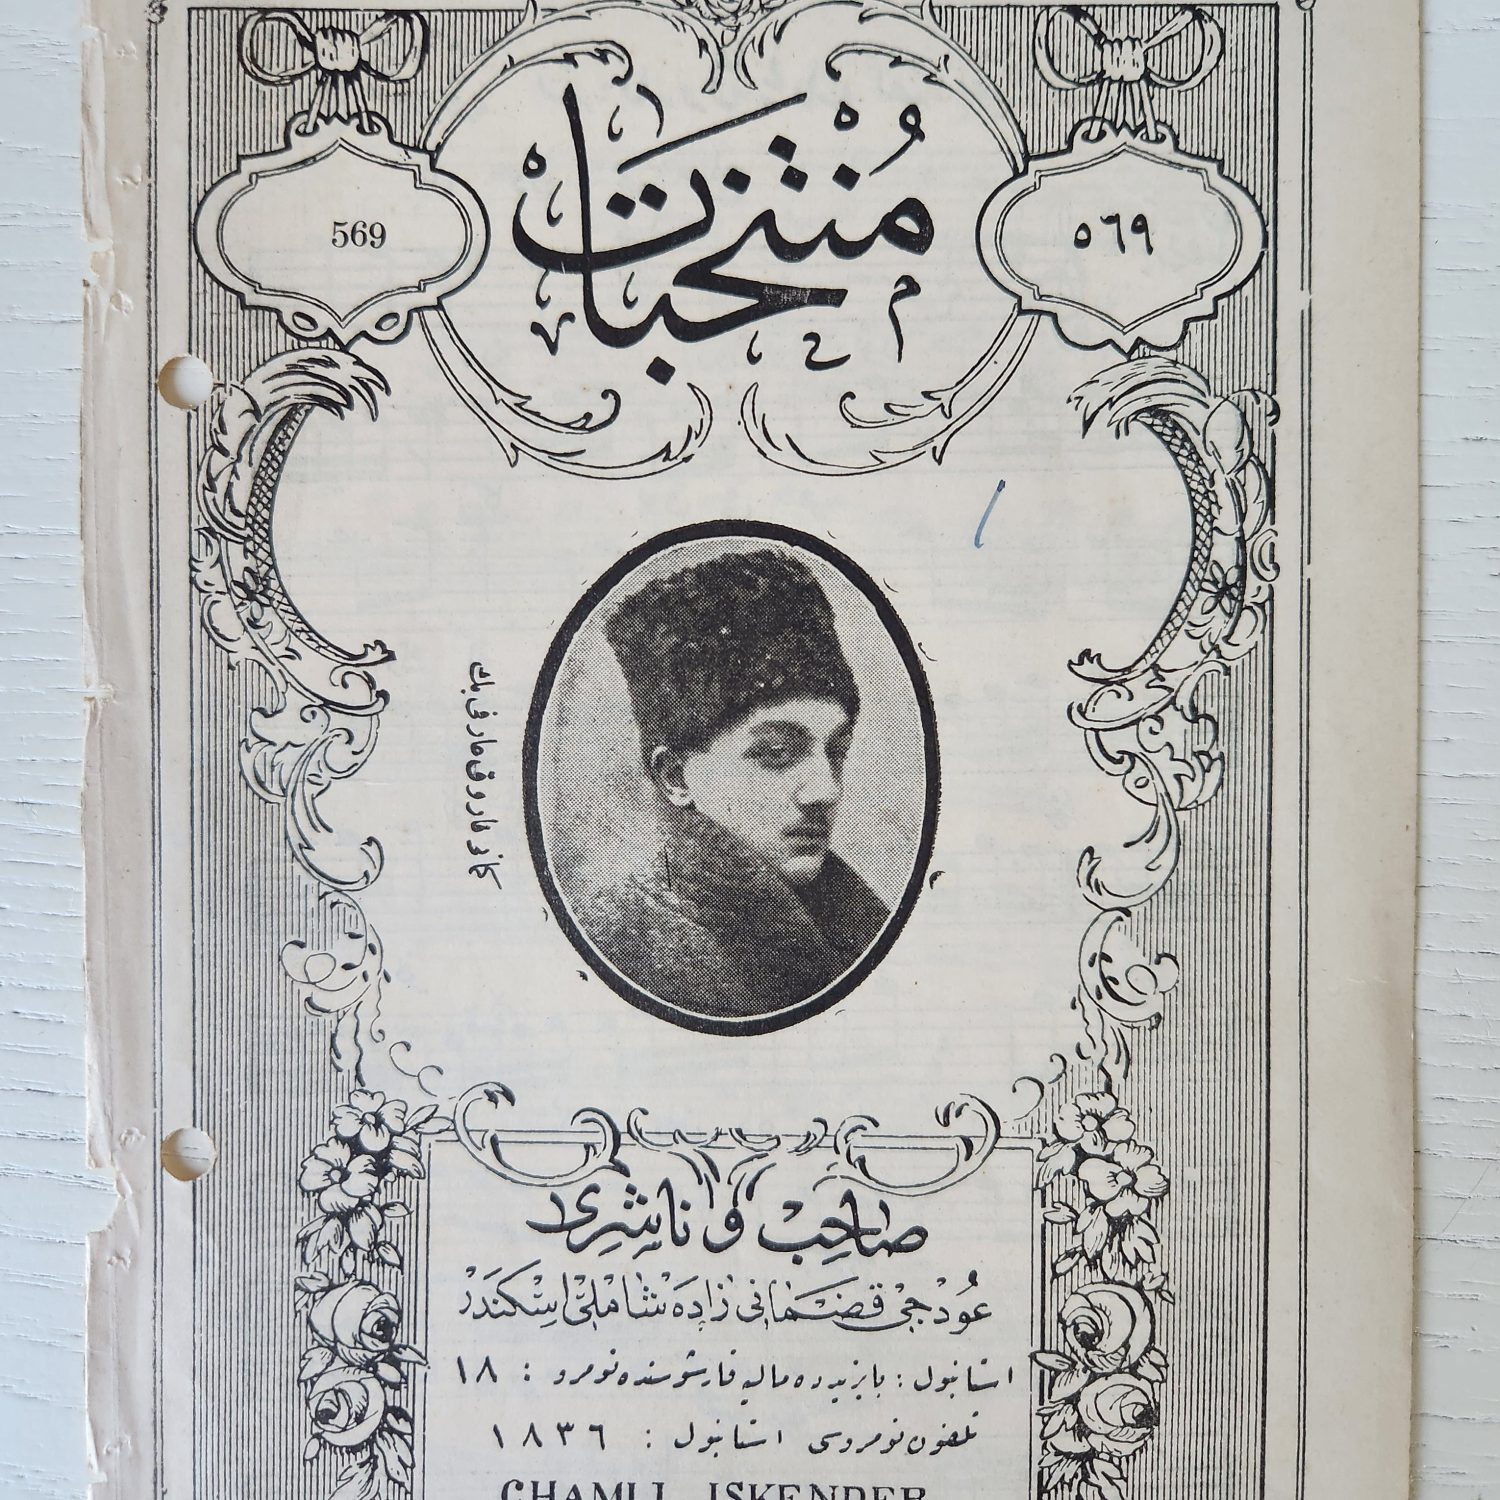 منتخبات
569
٥٦٩
صاحب و ناشری
عودجی قضمانی زاده شاملی اسكندر
استانبول : بایزیدده مالیه قارشوسنده نومرو : ١٨
تلفون نومروسی استانبول : ١٨٣٦
CHAMLI ISKENDER